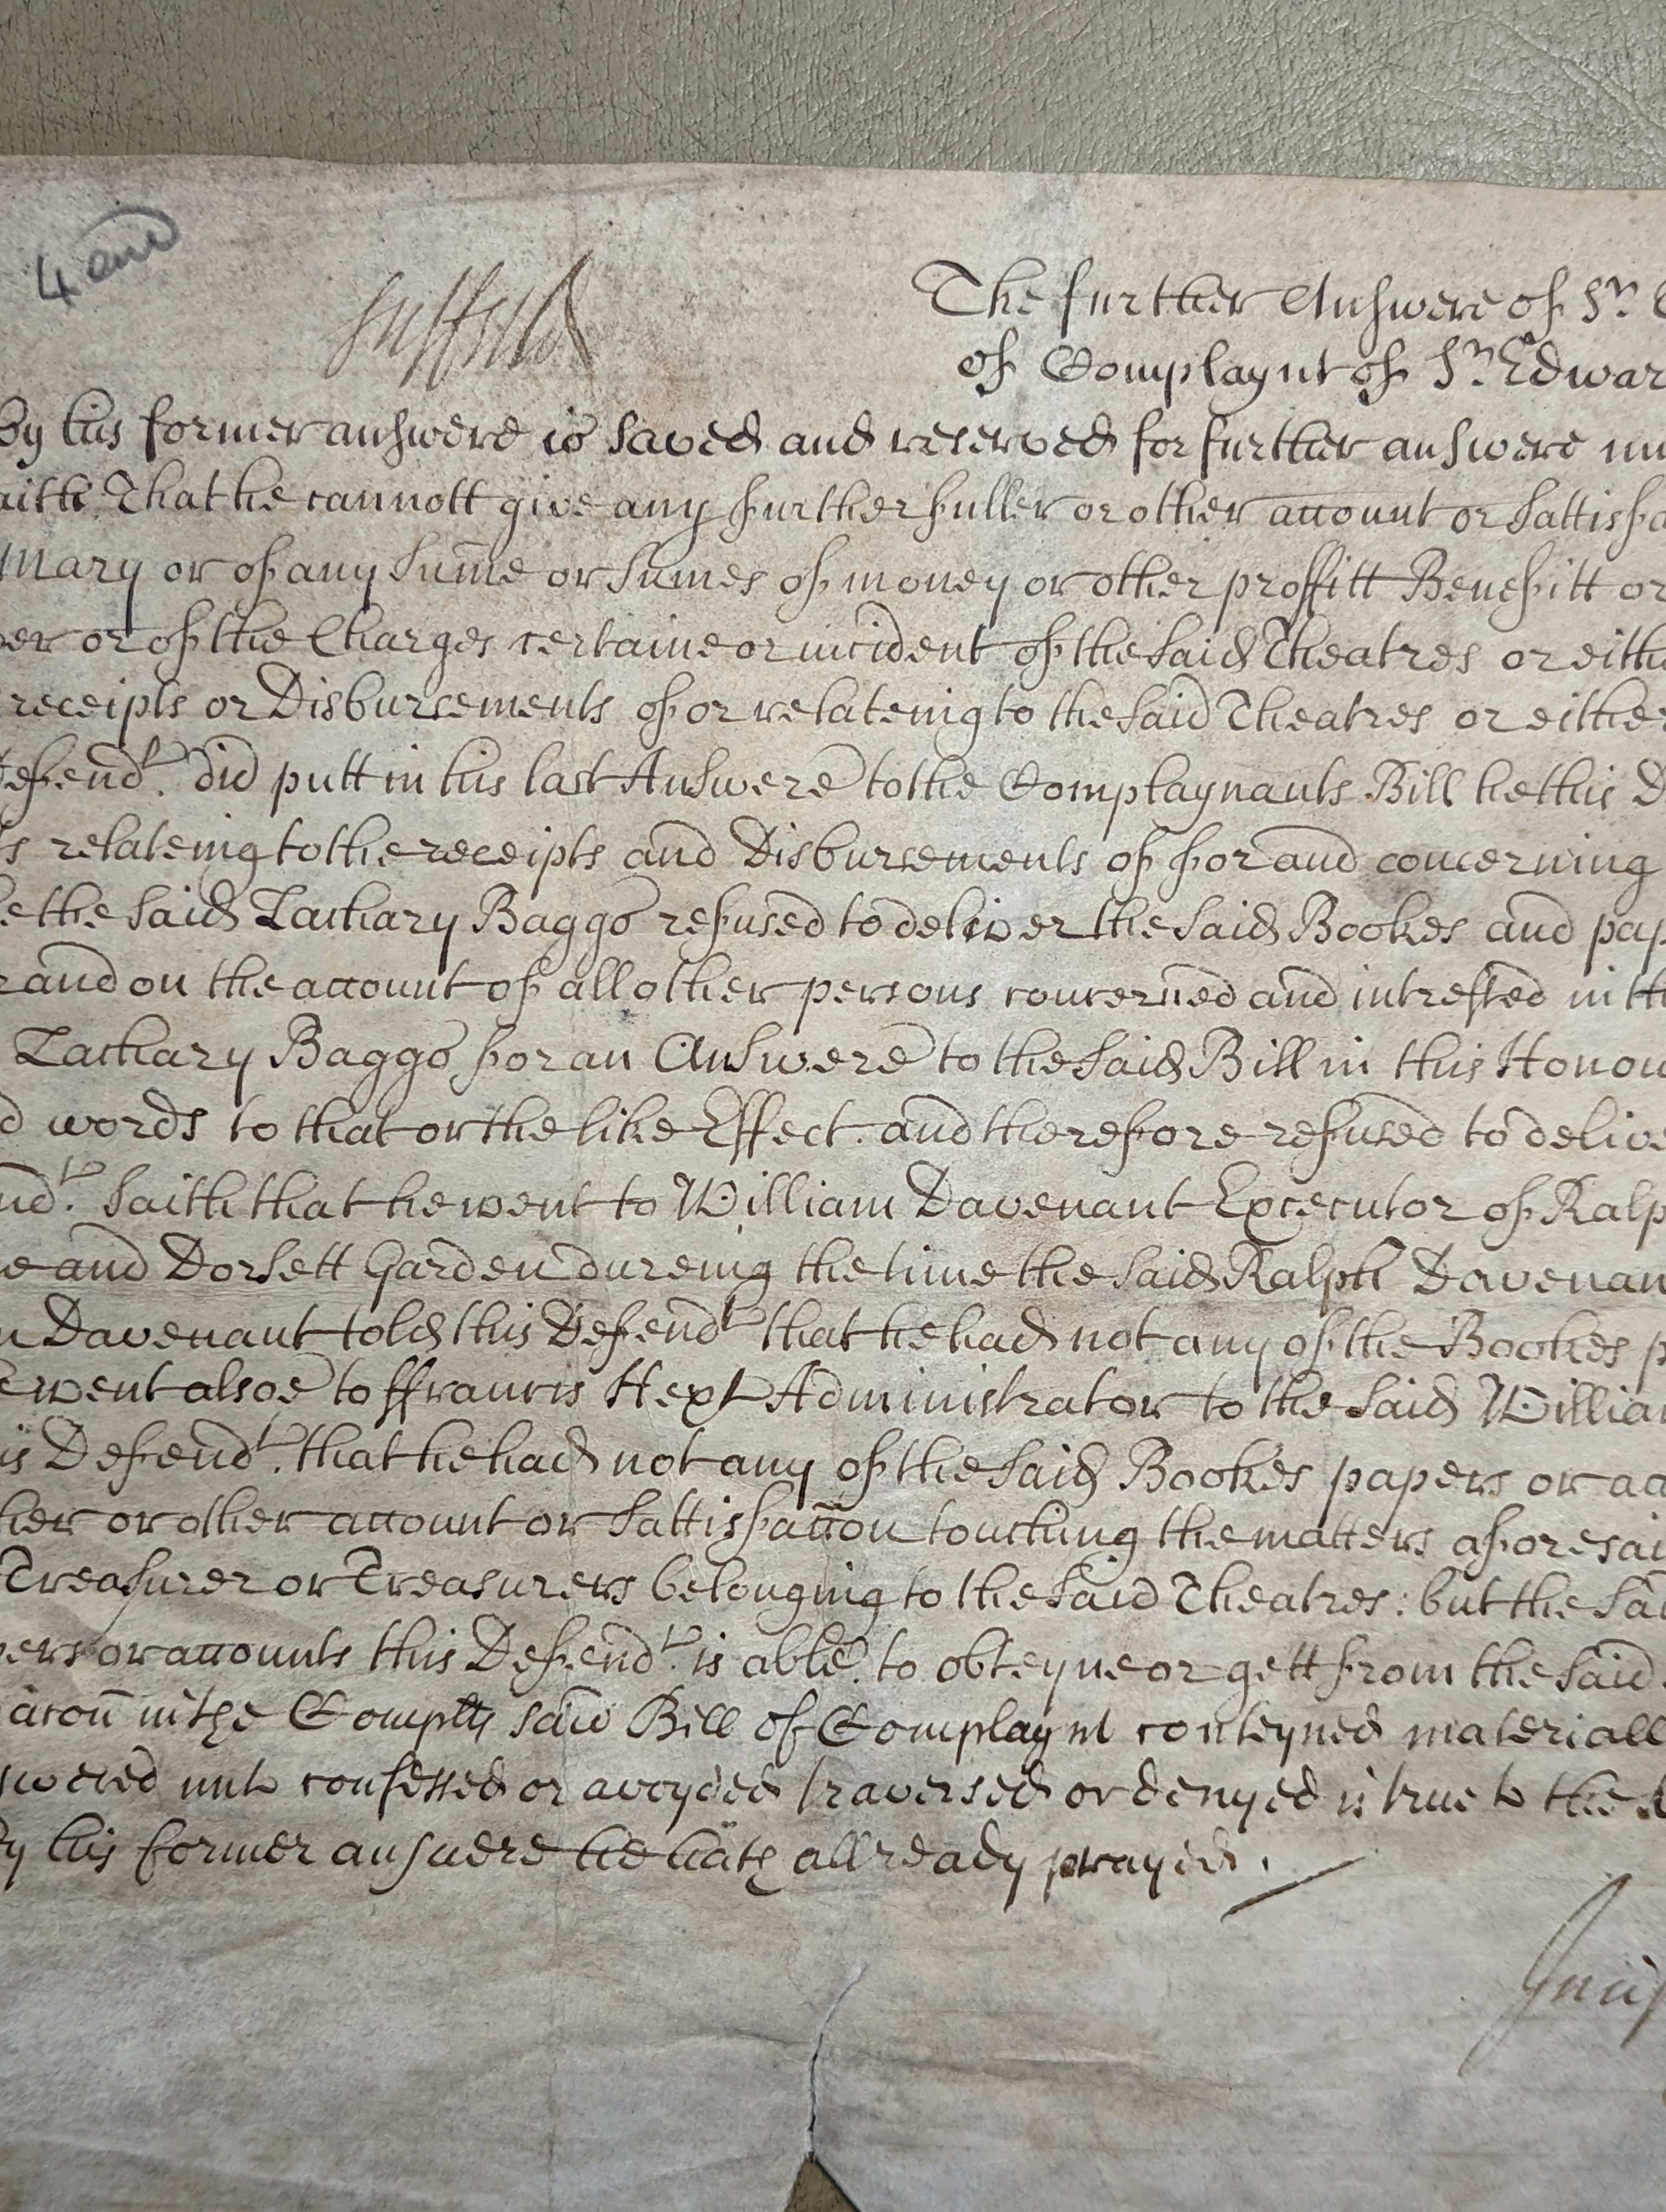 4 ans
Suffolk
The further Answere of Sr.
of Complaynt of Sr. Edwar
by his former answere is saved and reserved for further answere un
aith That he cannott give any further fuller or other account or sattisfa
Mary or of any sum̄e or sumes of money or other proffitt Benefitt or
er or of the Charges certaine or incident of the said Theatres or eithe
receipts or Disbursements of or relateing to the said Theatres or either
efendt. did putt in his last Answere to the Complaynants Bill he this D
s relateing to the receipts and Disbursements of for and concerning
e the said Zachary Baggs refused to deliver the said Bookes and pap
r and on the account of all other persons concerned and intrested in th
Zachary Baggs for an Answere to the said Bill in this Honou
d words to that or the like Effect. and therefore refused to delive
ndt. saith that he went to William Davenant Excecutor of Ralp
e and Dorsett Garden dureing the time the said Ralph Davenan
n Davenant told this Defendt that he had not any of the Bookes p
e went alsoe to ffrancis Hext Administrator to the said William
is Defendt. that he had not any of the said Bookes papers or ac
her or other account or sattisfac̄on touching the matters aforesai
Treasurer or Treasurers belonging to the said Theatres: but the sai
pers or accounts this Defendt. is able to obteyne or gett from the said
acon̄ in the Complts said Bill of Complaynt conteyned materiall
swered unto confessed or avoyded traversed or denyed is true to the
by his former answere he hath allready prayed.